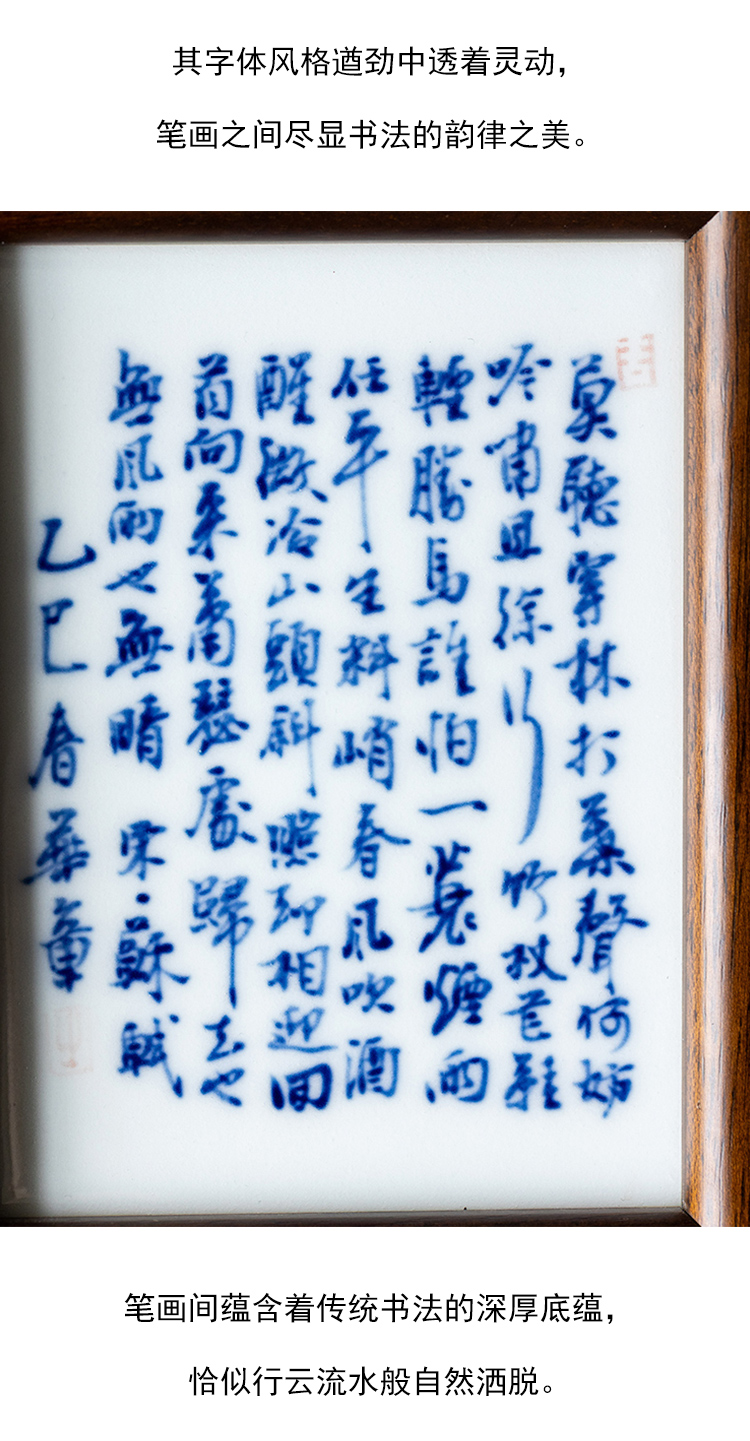 其字体风格遒劲中透着灵动，
笔画之间尽显书法的韵律之美。
莫聽穿林打葉聲何妨
吟嘯且徐行竹杖芒鞋
輕勝馬誰怕一蓑煙雨
任平生料峭春風吹酒
醒微冷山頭斜照却相迎回
首向來蕭瑟處歸去也
無風雨也無晴 宋：蘇軾
乙巳春華章
笔画间蕴含着传统书法的深厚底蕴，
恰似行云流水般自然洒脱。